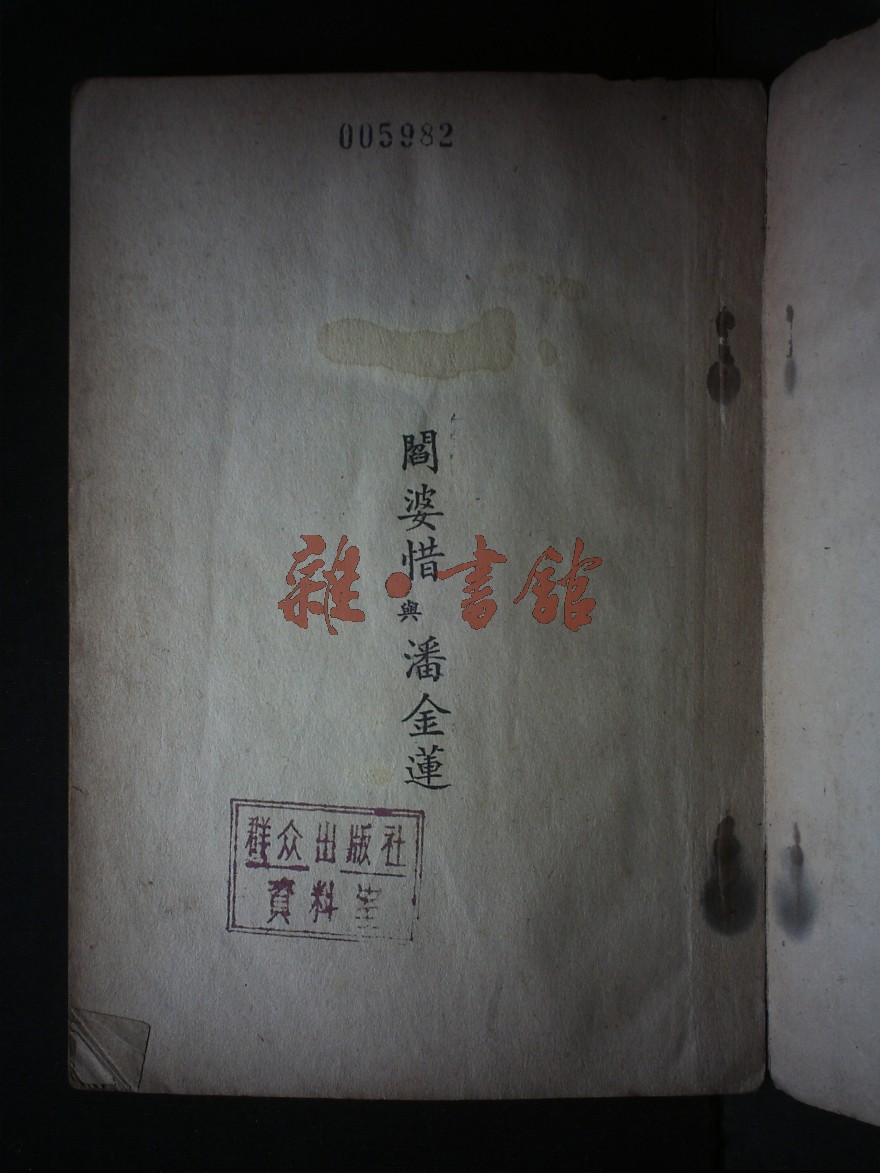 005982
閻婆惜與潘金蓮
雜·書館
群众出版社
資料室